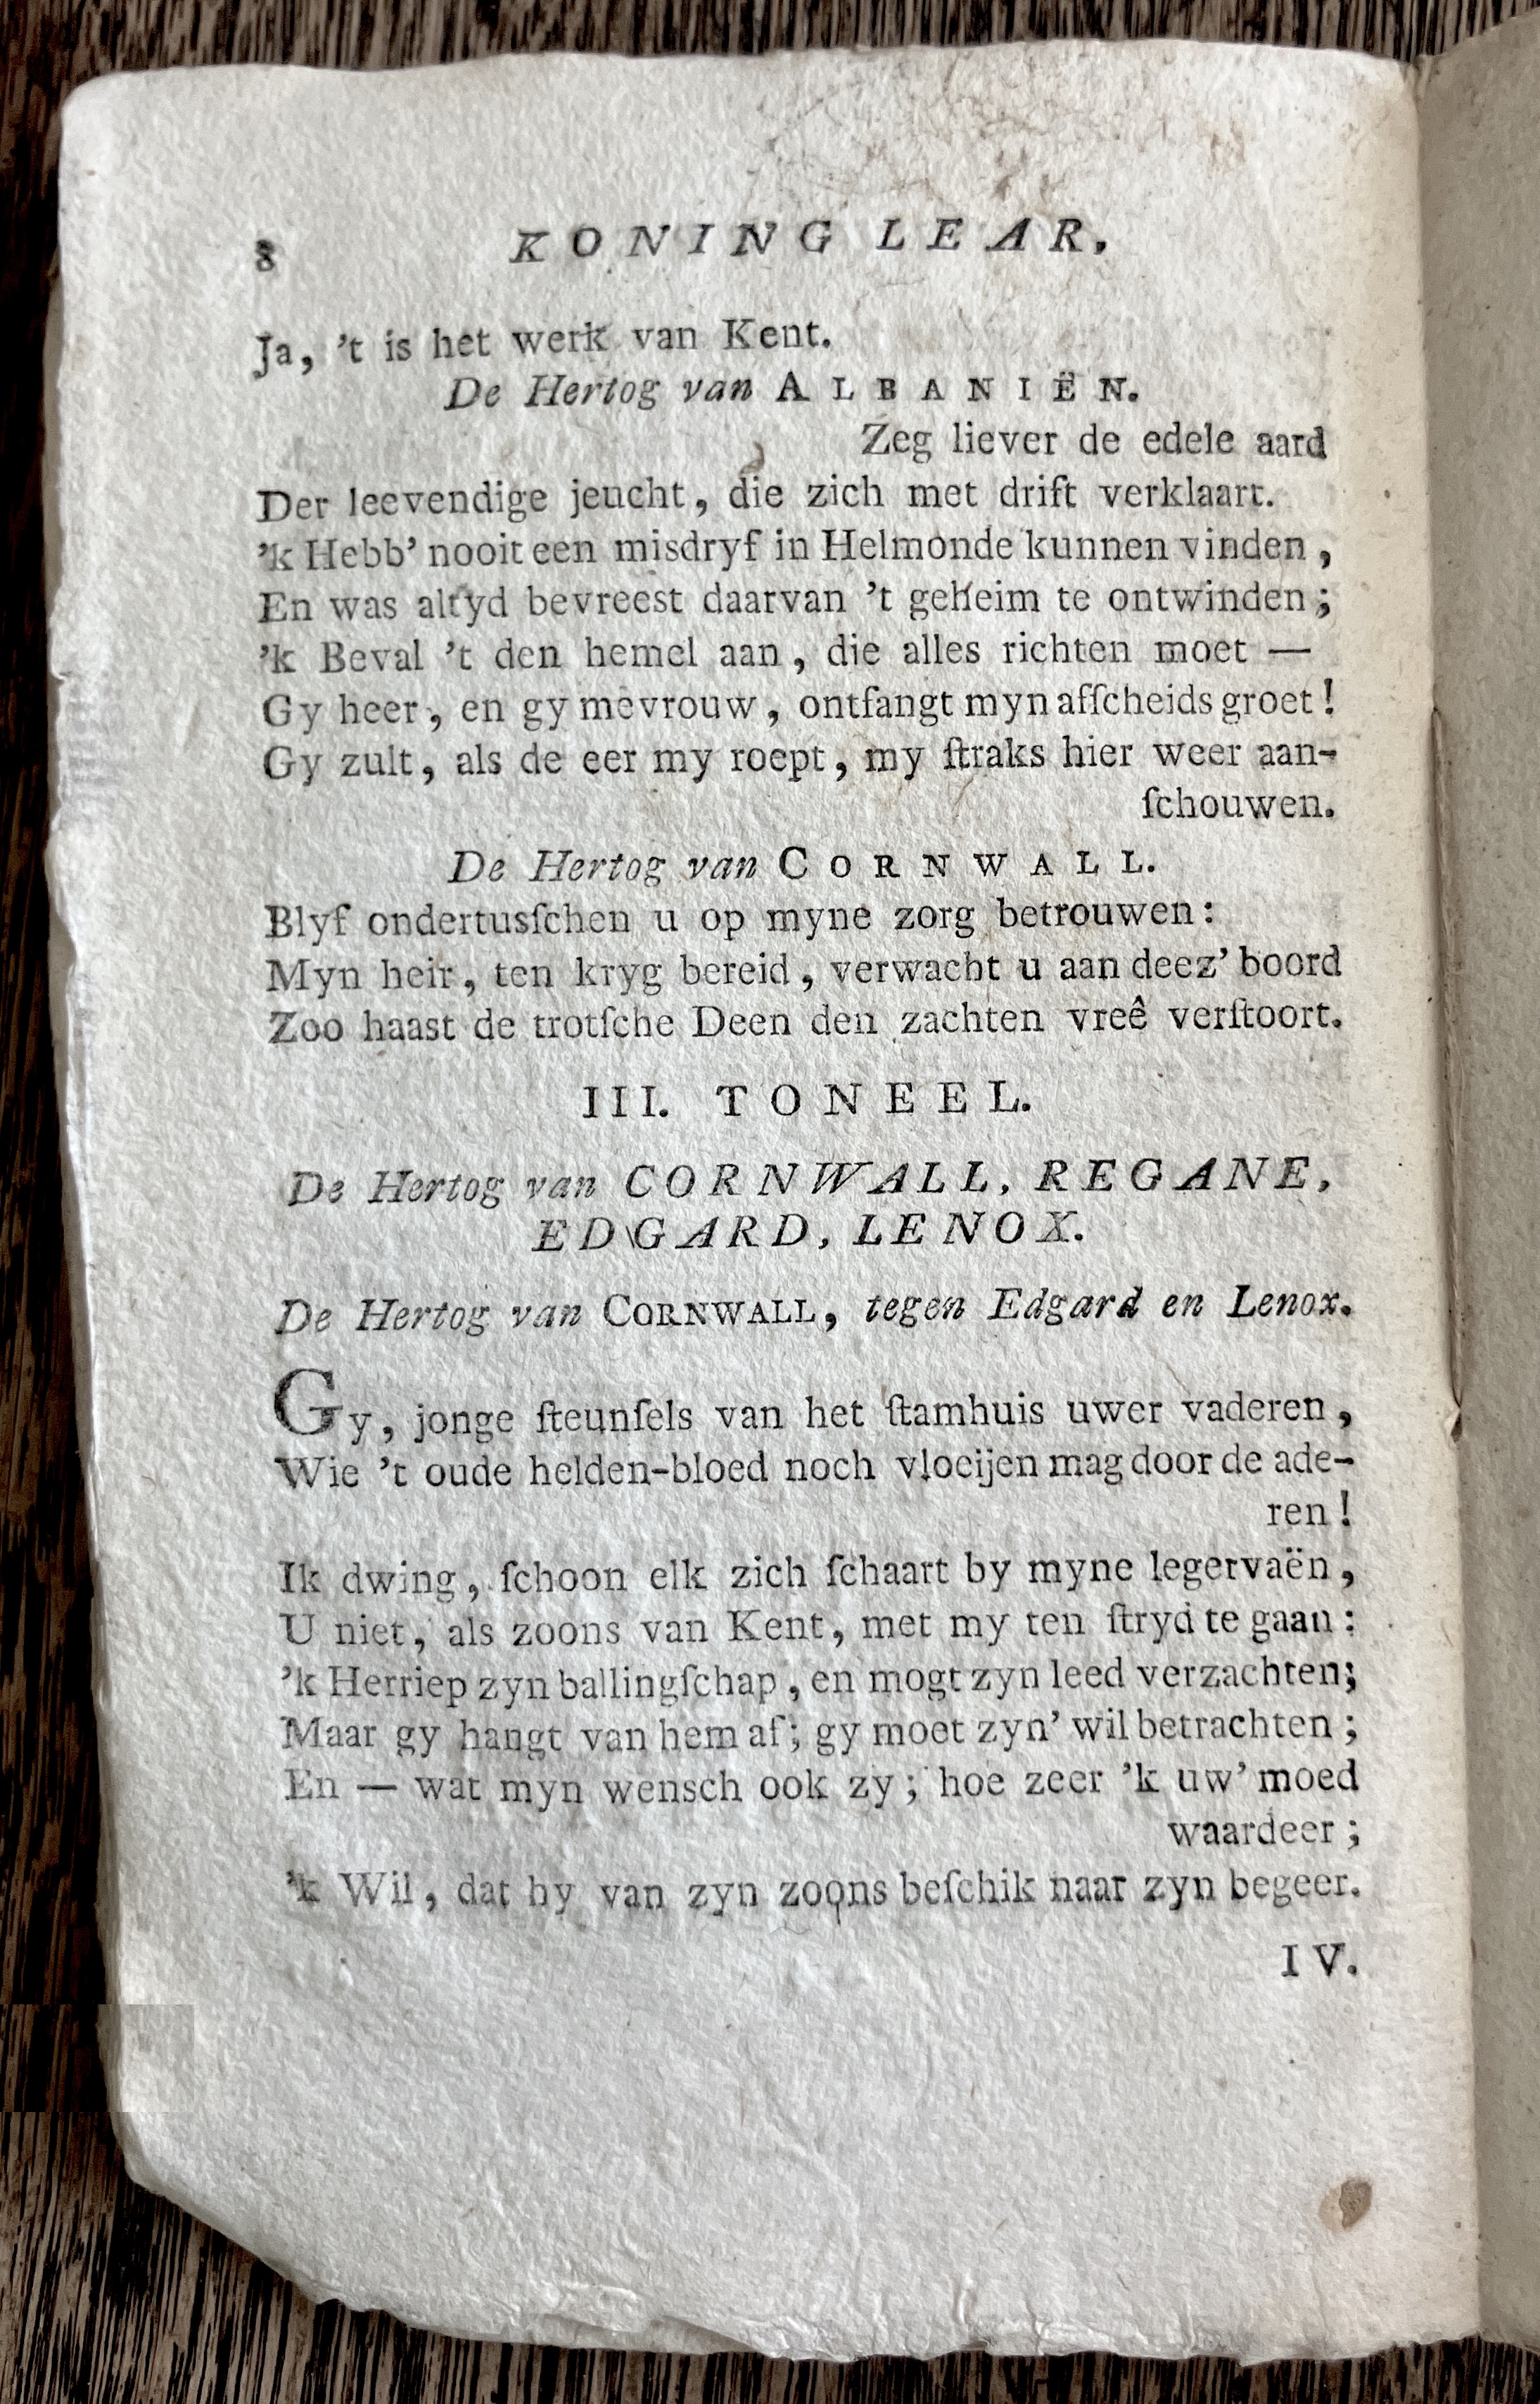 8 KONING LEAR,
Ja, 't is het werk van Kent.
De Hertog van ALBANIËN.
Zeg liever de edele aard
Der leevendige jeucht, die zich met drift verklaart.
'k Hebb' nooit een misdryf in Helmonde kunnen vinden,
En was altyd bevreest daarvan 't geheim te ontwinden;
'k Beval 't den hemel aan, die alles richten moet —
Gy heer, en gy mevrouw, ontfangt myn afſcheids groet!
Gy zult, als de eer my roept, my ſtraks hier weer aan-
ſchouwen.
De Hertog van CORNWALL.
Blyf ondertusſchen u op myne zorg betrouwen:
Myn heir, ten kryg bereid, verwacht u aan deez' boord
Zoo haast de trotſche Deen den zachten vreê verſtoort.
III. TONEEL.
De Hertog van CORNWALL, REGANE,
EDGARD, LENOX.
De Hertog van CORNWALL, tegen Edgard en Lenox.
Gy, jonge ſteunſels van het ſtamhuis uwer vaderen,
Wie 't oude helden-bloed noch vloeijen mag door de ade-
ren!
Ik dwing, ſchoon elk zich ſchaart by myne legervaën,
U niet, als zoons van Kent, met my ten ſtryd te gaan:
'k Herriep zyn ballingſchap, en mogt zyn leed verzachten;
Maar gy hangt van hem af; gy moet zyn' wil betrachten;
En — wat myn wensch ook zy; hoe zeer 'k uw' moed
waardeer;
'k Wil, dat hy van zyn zoons beſchik naar zyn begeer.
IV.